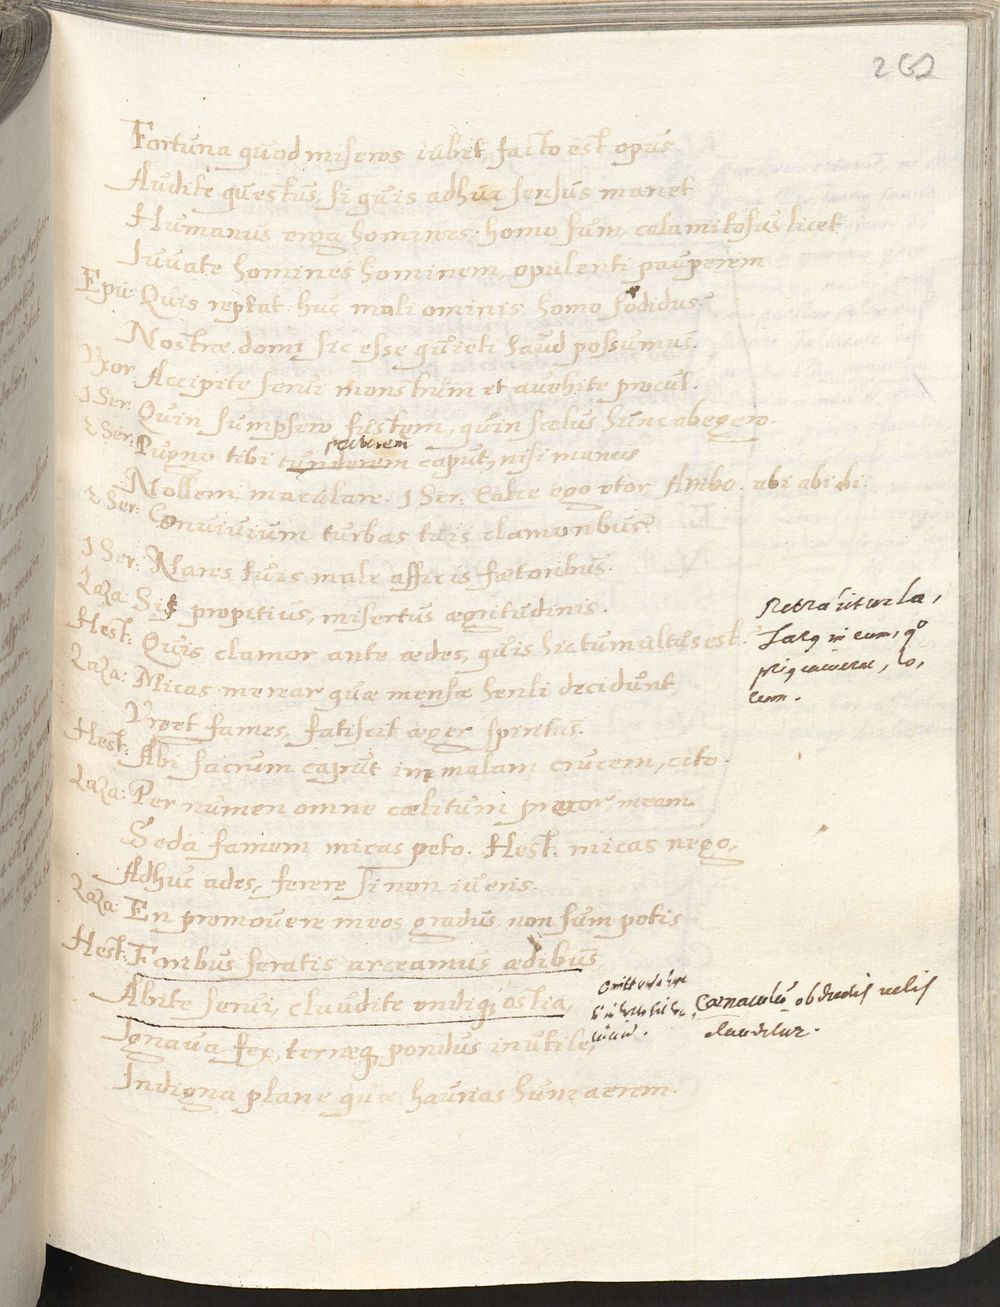 262
Fortuna quod miseros iubet, facto est opus.
Audite questus, si quis adhuc sensus manet
Humanus erga homines: homo sum, calamitosus licet
Iuvate homines hominem, opulenti pauperem
Epu: Quis reptat huc mali ominis homo sodidus?
Nostræ domi sic esse quieti haud possumus.
Vxor Accipite servi monstrum et avehite procul.
1 Ser: Quin sumpsero fustem, quin scelus hunc abegero.
2 Ser: Pugno tibi tunderem caput, nisi manus
Nollem maculare. 1 Ser. Calce ego vtor, Ambo. abi abi di
2 Ser: Convivium turbas tuis clamoribus?
1 Ser: Nares tuis male afficis fætoribus.
Laza: Sis propitius, misertus ægritudinis.
Hest: Quis clamor ante ædes, quis hic tumultus est?
Laza: Micas merear quæ mensæ herili decidunt,
Vrget fames, fatiscit æger spiritus.
Hest: Abi sacrum caput in malam crucem, cito.
Laza: Per numen omne cælitum precor, meam
Seda famem micas peto. Hest: micas nego,
Adhuc ades, ferere si non iveris.
Laza: En promovere meos gradus non sum potis
Hest: Foribus seratis arceamus ædibus,
Abite servi, claudite vndiq; ostia,
Ignava fex, terræq; pondus inutile,
Indigna plane quæ haurias hunc aerem.
Retrahitur La,
Zarq in eum, qo
priq iacuerat, lo,
cum.
Cœnaculū obductis velis
clauditur.